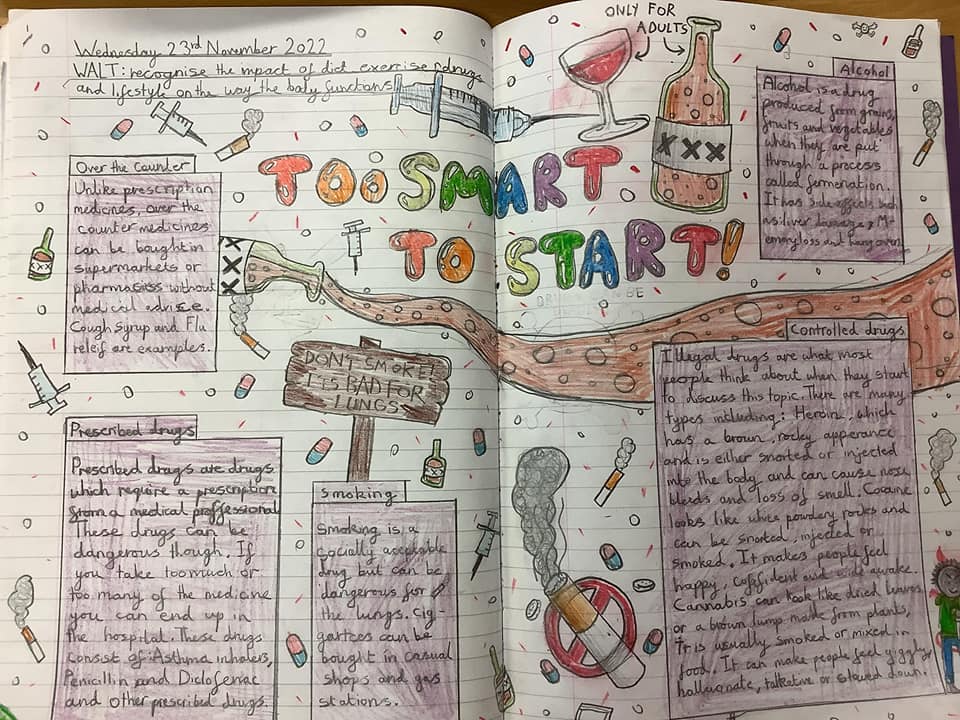 Wednesday 23rd November 2022
WALT: recognise the impact of diet exercise, drugs
and lifestyle on the way the body functions
ONLY FOR
ADULTS
TOO SMART
TO START!
XXX
XXX
Over the Counter
Unlike prescription
medicines, over the
counter medicines
can be bought in
supermarkets or
pharmasiss without
medical advice.
Cough Syrup and Flu
releif are examples.
DON'T SMOKE!
ITS BAD FOR
LUNGS
Prescribed drugs
Prescribed drugs are drugs
which require a prescription
from a medical proffessional
These drugs can be
dangerous though. If
you take too much or
too many of the medicine
you can end up in
the hospital. These drugs
consist of: Asthma inhalers,
Penicillin and Diclofenac
and other prescribed drugs.
Smoking
Smoking is a
socially acceptable
drug but can be
dangerous for
the lungs. Cig-
garttes can be
bought in casual
shops and gas
stations.
Alcohol
Alcohol is a drug
produced from grains,
fruits and vegetables
when they are put
through a process
called fermenation.
It has side affects such
as: liver damage, M-
emory loss and hangovers
Controlled drugs
Illegal drugs are what most
people think about when they start
to discuss this topic. There are many
types including: Heroin, which
has a brown, rocky apperance
and is either snorted or injected
into the body and can cause nose
bleeds and loss of smell. Cocaine
looks like white powdery rocks and
can be snorted, injected or
smoked. It makes people feel
happy, coffident and wide awake.
Cannabis can look like dried leaves
or a brown lump made from plants,
It is usually smoked or mixed in
food. It can make people feel giggly,
hallucinate, talketive or slowed down.